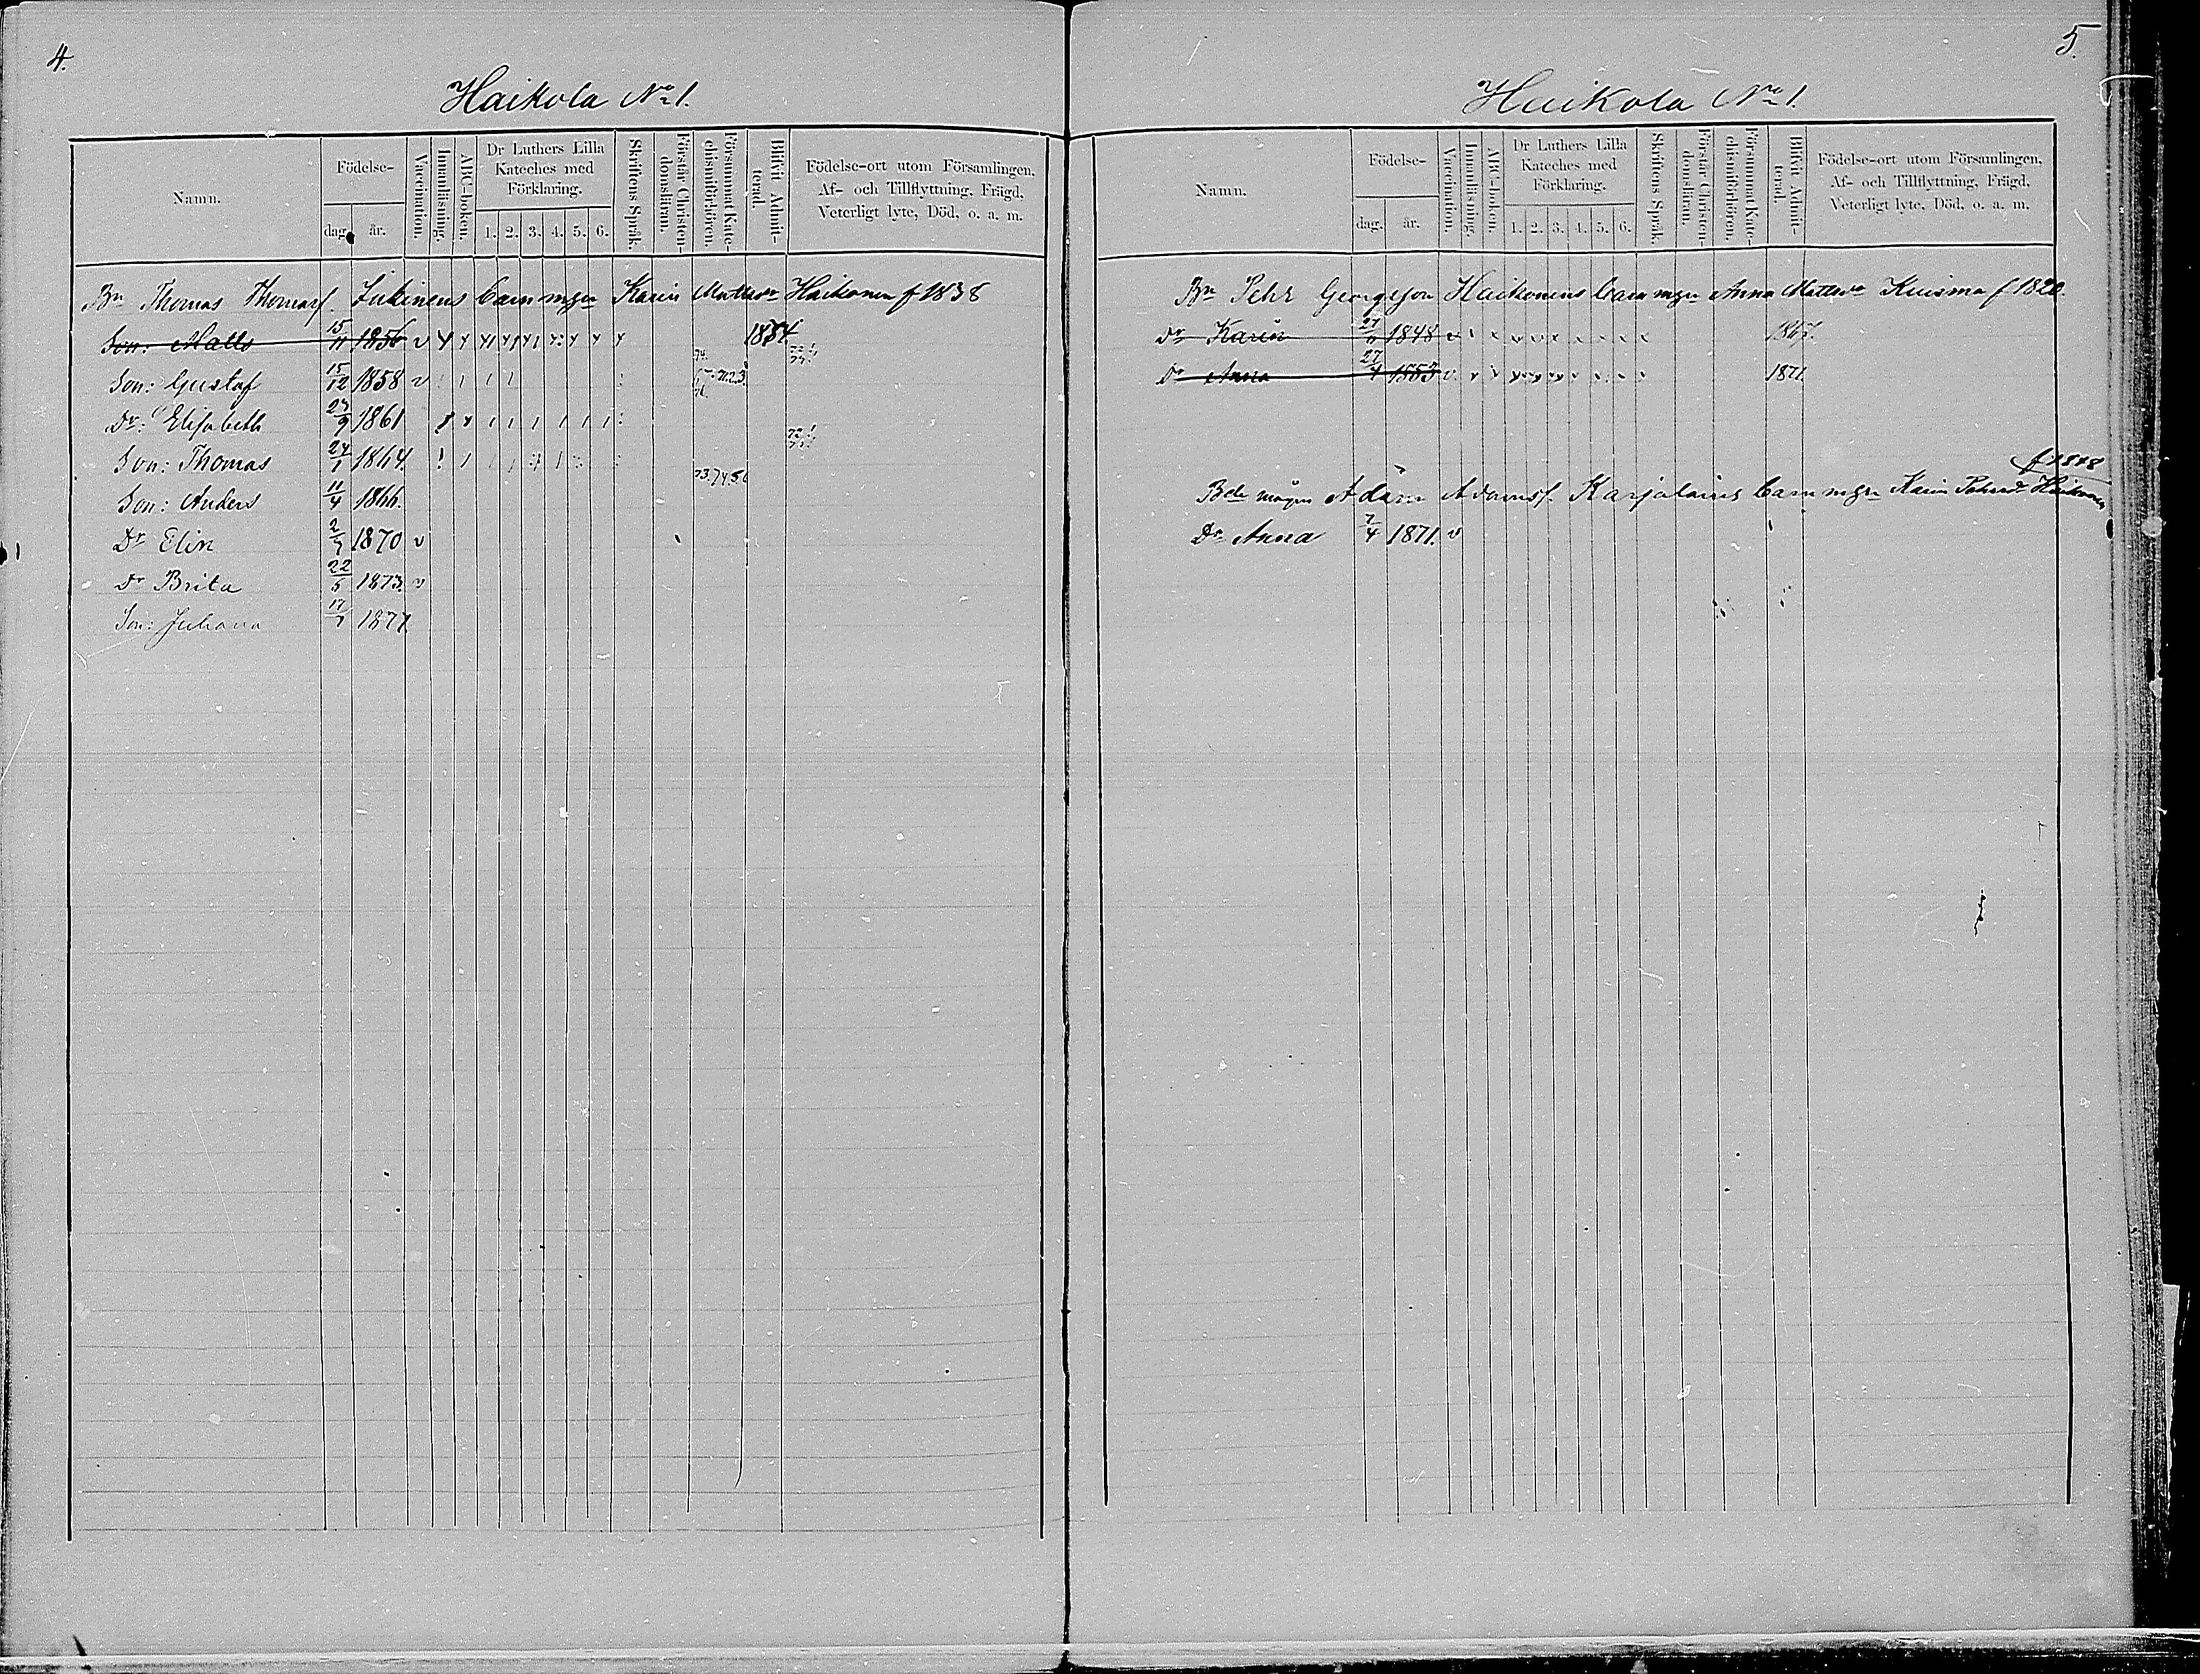 4.
Haikola No 1.
Namn.
Födelse-
dag.
år.
Vaccination.
Innanläsning.
ABC-boken.
Dr Luthers Lilla
Kateches med
Förklaring.
1. 2. 3. 4. 5. 6.
Skriftens Språk.
Förstår Christen-
domsläran.
Försummat Kate-
chismiförhören.
Blifvit Admit-
terad.
Födelse-ort utom Församlingen,
Af- och Tillflyttning, Frägd,
Veterligt lyte, Död, o. a. m.
Bn Thomas Thomasf. barn m Karin Haikonen f 1838
Son: Matts 15/11 1856 v
Son: Gustaf 15/12 1858 v
Dr: Elisabeth 1861
Son: Thomas 1864
Son: Anders 11/4 1866.
Dr Elin 1870 v
Dr Brita 22/5 1873. v
Son: Juhana 1877
5.
Haikola No 1.
Namn.
Födelse-
dag.
år.
Vaccination.
Innanläsning.
ABC-boken.
Dr Luthers Lilla
Kateches med
Förklaring.
1. 2. 3. 4. 5. 6.
Skriftens Språk.
Förstår Christen-
domsläran.
Försummat Kate-
chismiförhören.
Blifvit Admit-
terad.
Födelse-ort utom Församlingen,
Af- och Tillflyttning, Frägd,
Veterligt lyte, Död, o. a. m.
Bn Pehr Georgsson Haikonens barn m Anna Kuisma f 1820.
Dr Karin 1848 v 1867.
Dr Anna 27/4 1853 v 1871
f 1848
mågen Adam Adamsf. Karjalains barn m Karin Haikonen
Dr Anna 7/4 1871. v